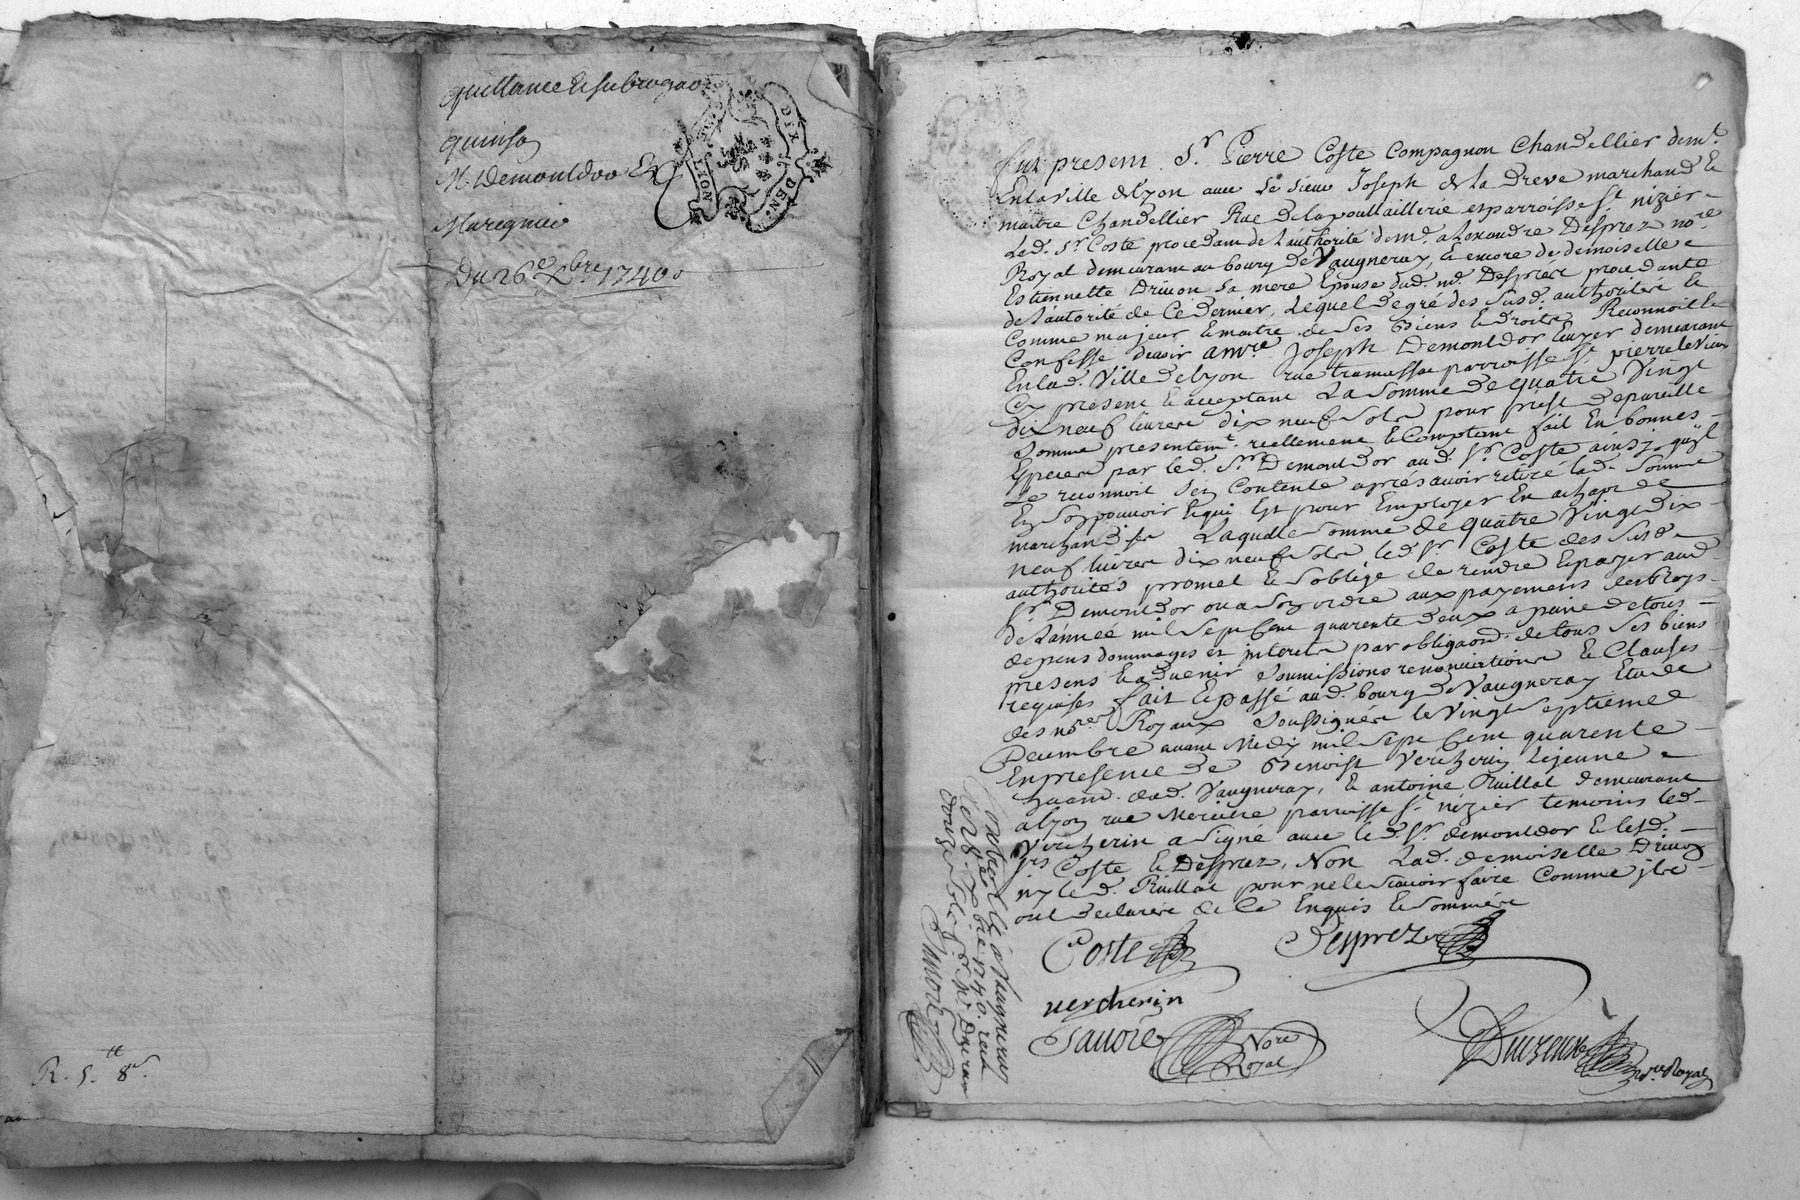 quittance et subrogaon
quinson
M. Demontdor Et
Maregnier
Du 26e Xbre 1740
LYON
DIX DEN.
R. 5.tt 8s.
Fut present Sr. Pierre Coste Compagnon Chandellier demt.
En la Ville de Lyon avec le sieur Joseph de la Dreve marchand Et
maitre Chandellier Rue de la poullaillerie et parroisse st nizier
Led. Sr Coste procedant de L'authorité de me. alexandre Desprez nore
Royal demeurant au bourg de Vaugneray, Et encore de demoiselle
Estiennette Drivon Sa mere Epouse dud. me. Desprez procedante
de L'autorité de Ce dernier, Lequel de gré des Susd. authoritéz Et
Comme majeur Et maitre de Ses Biens Et droits Reconnoit Et
Confesse devoir a mre Joseph Demontdor Ecuyer demeurant
En lad. Ville de Lyon rue tramassac parroisse st pierre le vieux
Cy present Et acceptant La Somme de quatre Vingt
dix neuf livres dix neuf Sols pour prest de pareille
Somme presentemt. reellement Et Comptant fait En bonnes
Especes par led. Sr. Demontdor aud. Sr. Coste ainsy qu'jl
Le reconnoit Sen Contente aprés avoir retiré lad. Somme
En Son pouvoir Et qui Est pour Employer En achapt de
marchandises Laquelle Somme de quatre Vingt dix
neuf livres dix neuf Sols led. Sr Coste des Susd.
authorités promet Et S'oblige de rendre Et payer aud.
Sr. Demontdor ou a Son ordre aux payemens des Roys
de L'année mil Sept Cent quarente deux a peine de tous
depens dommages et jnterets par obligaon. de tous Ses biens
presens Et a advenir Soumissions renonciations Et Clauses
requises fait Et passé aud. bourg de Vaugneray Etude
des nores Royaux Soussignés le Vingt Septieme
Decembre avant Midy mil Sept Cent quarente
En presence de Benoist Vercherin Le jeune
dud. Vaugneray, Et antoine Ruillat demeurant
a Lyon rue Merciere parroisse st nizier temoins led.
Vercherin a Signé avec led. Sr. demontdor Et lesd.
Srs Coste Et Desprez, Non Lad. demoiselle Drivon
ny led. Ruillat pour ne le Scavoir faire Comme jls
ont declarés de Ce Enquis Et Sommés
Coste
Desprez
vercherin
Savoie Nore Royal
nore Royal
Controllé a Vaugneray
le 28 Xbre 1740. recu
douze Sols
Savoie